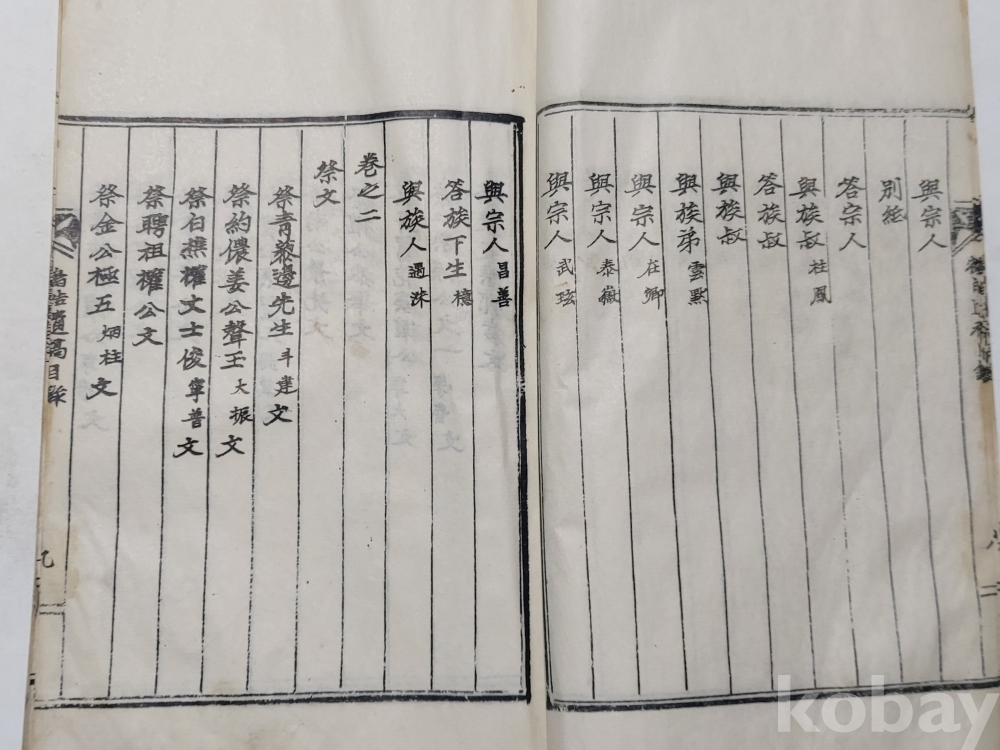 與宗人
別紙
答宗人
與族叔 柱鳳
答族叔
與族叔
與族弟 雲點
與宗人 在卿
與宗人 泰徽
與宗人 武玹
與宗人 昌善
答族下生 檍
與族人 遇洙
卷之二
祭文
祭青藜邊先生 斗建 文
祭約儂姜公聲玉 大振 文
祭白樵權文士俊 寧普 文
祭聘祖權公文
祭金公極五 炳柱 文
遺稿目錄
九
kobay